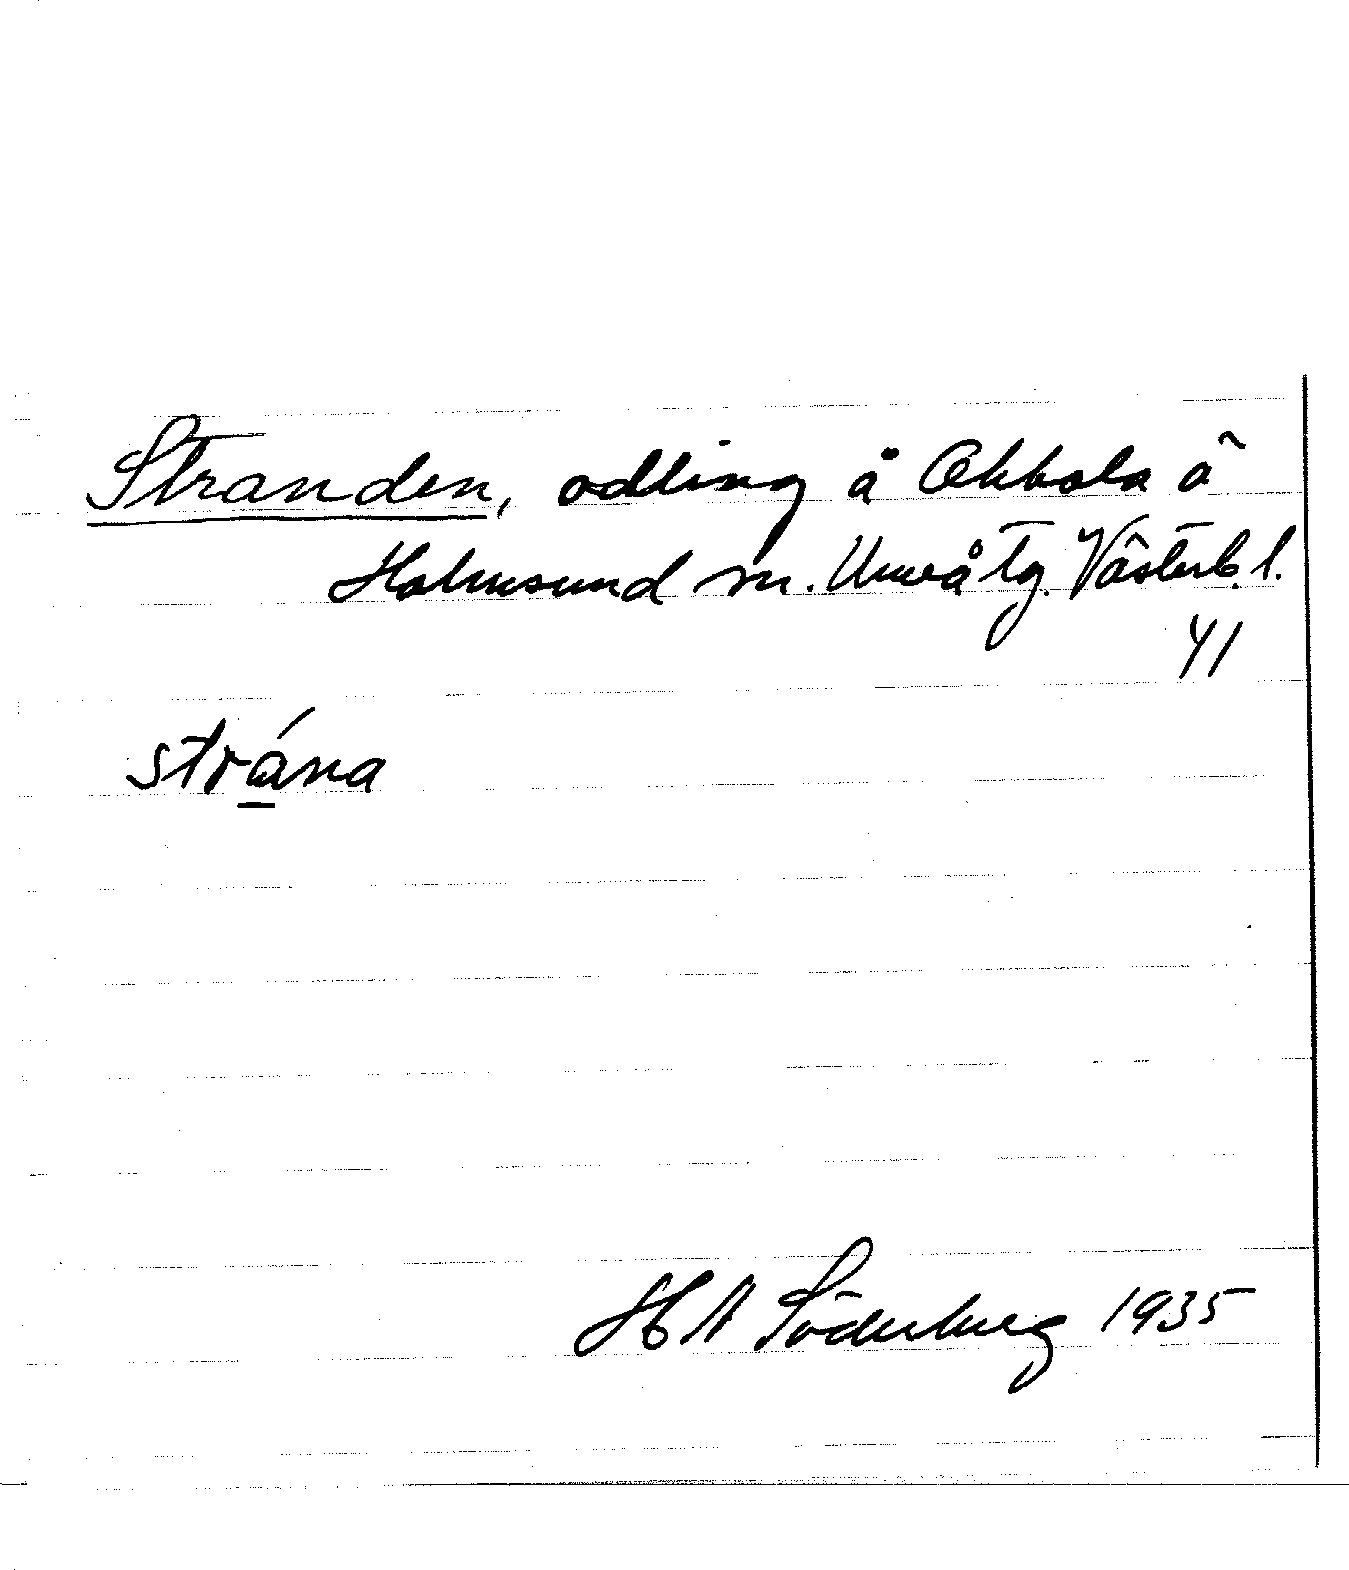 Stranden, odling å Obbola ö
Holmsund sn. Umeå tg. Västerb. l.
41
strána
H A Söderberg 1935